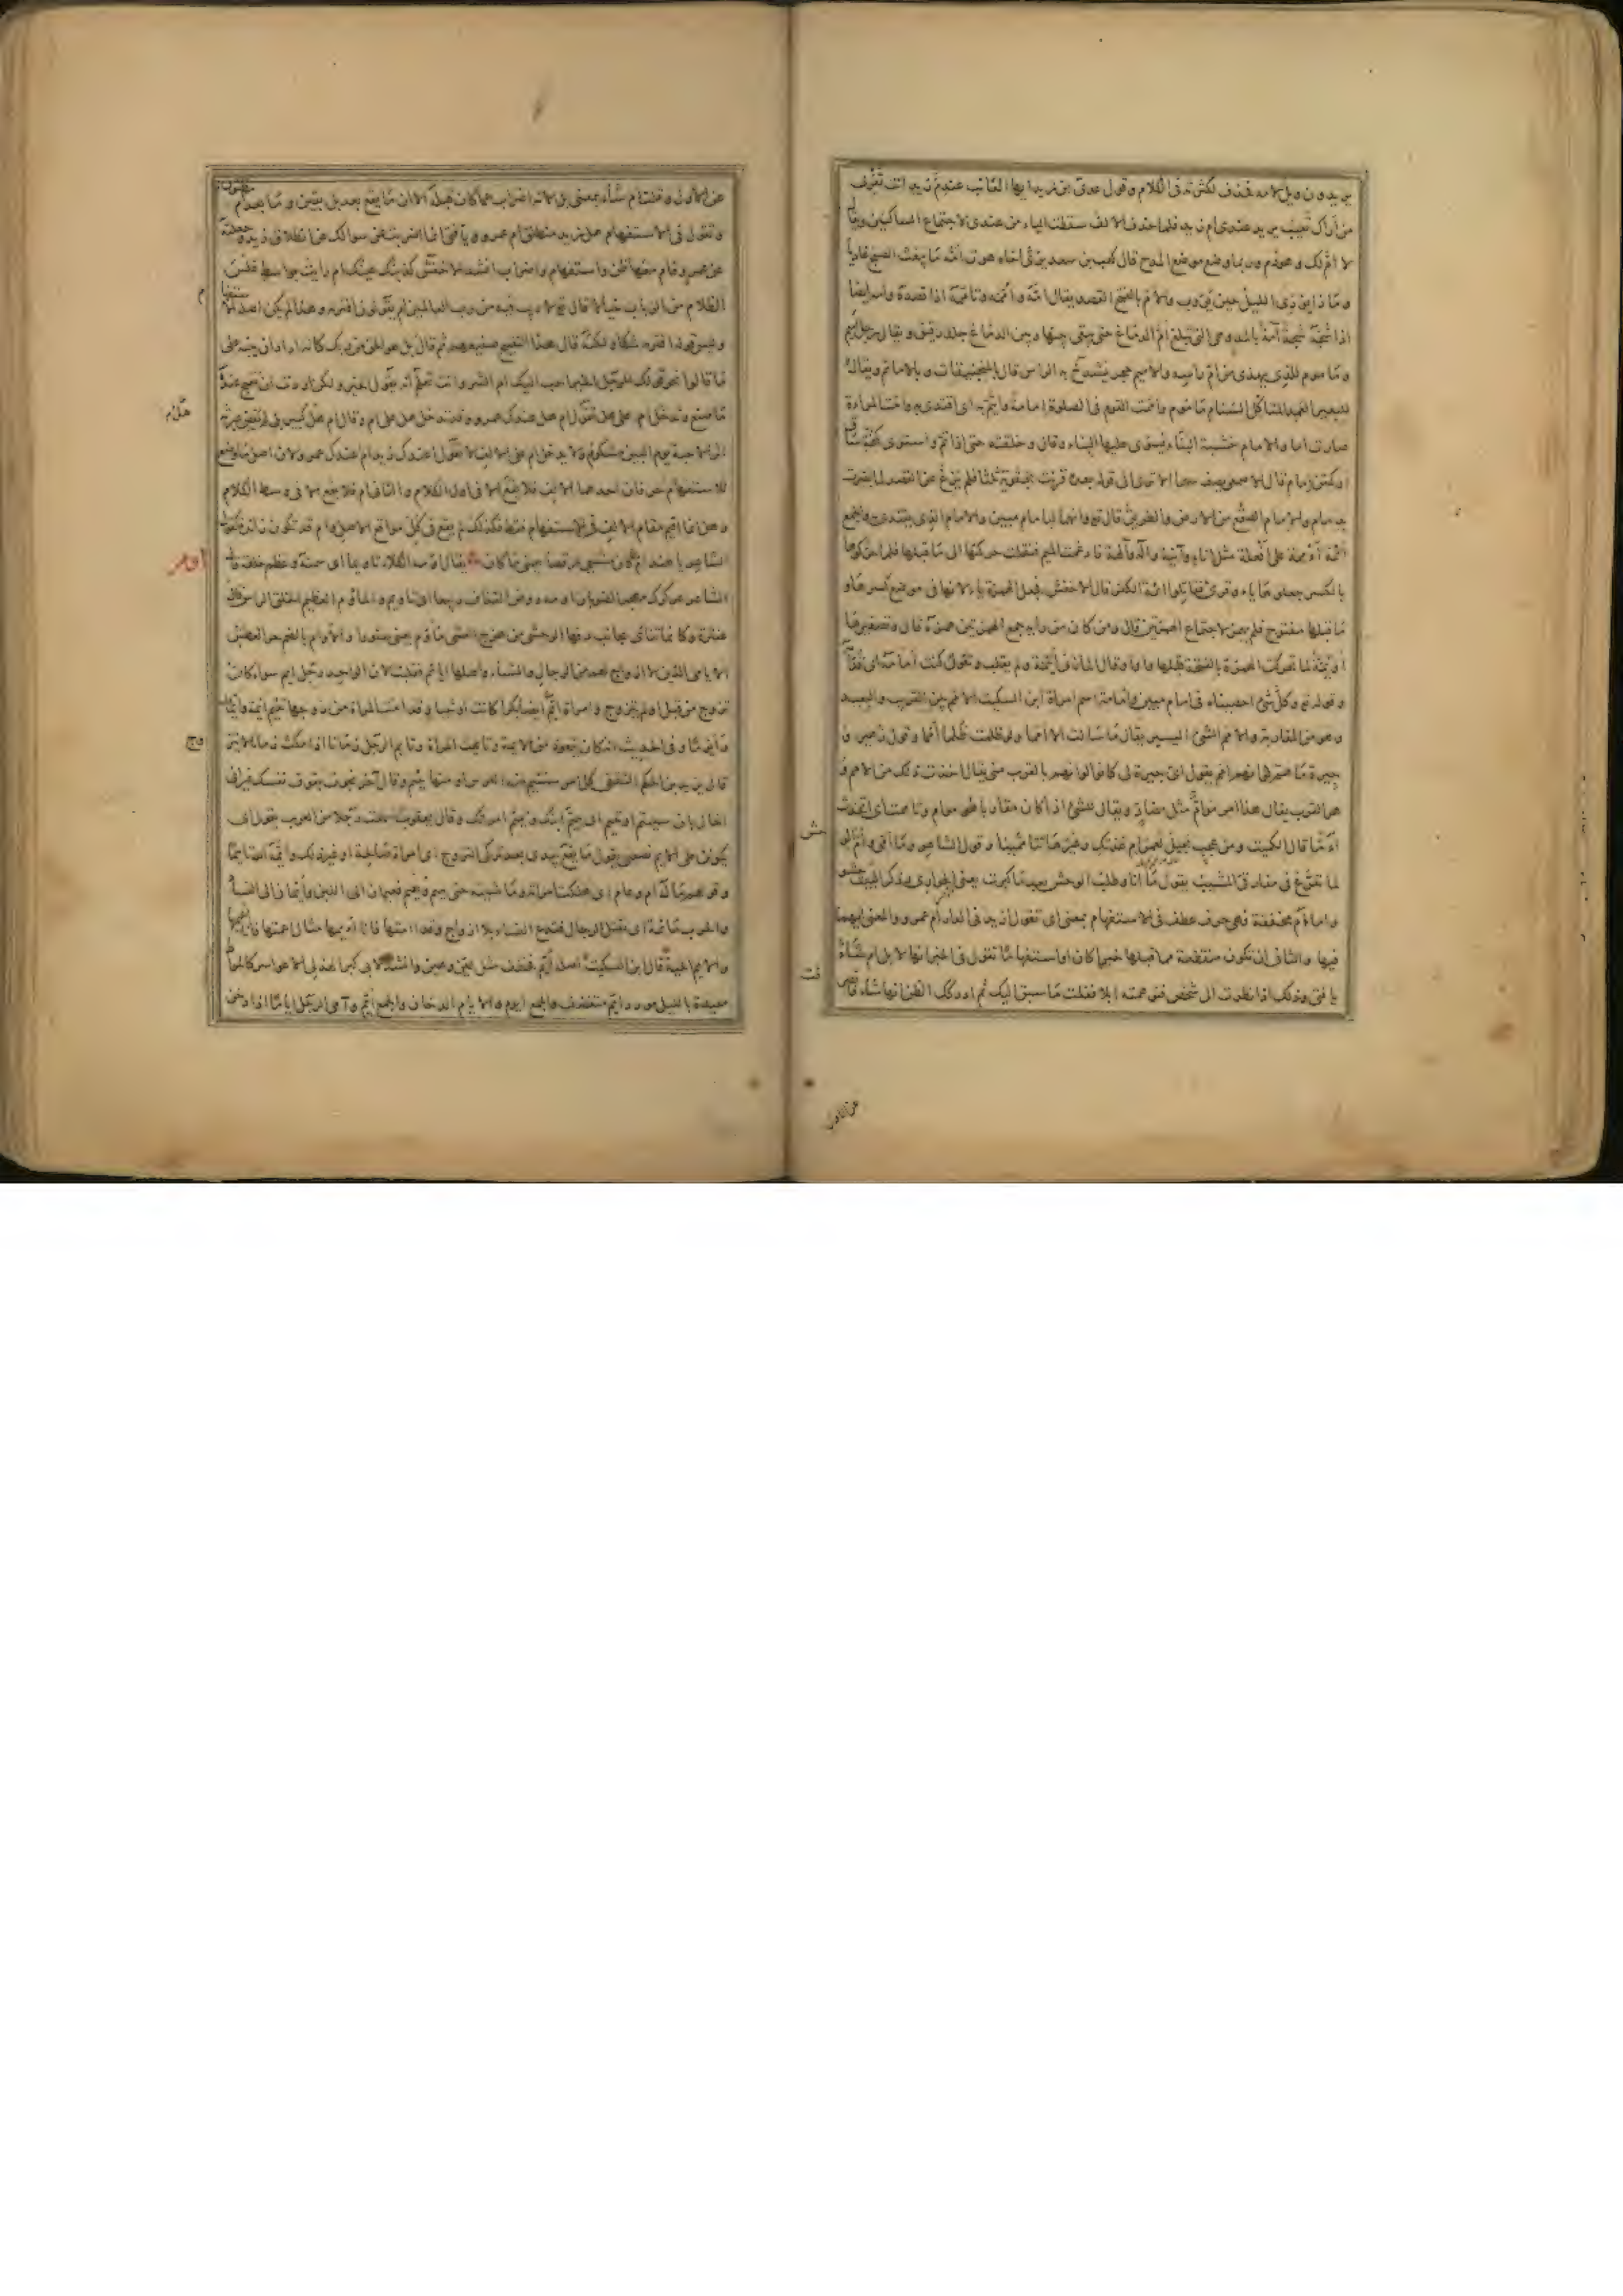 يريدون ويل لامه فحذف لكثرته فى الكلام وقول عدى بن زيد ايها العائب عندى ام زيد انت تفدى
من اراك تعيب يريد عندى ام زيد فلما حذف الالف سقطت الياء من عندى لاجتماع الساكنين ويقال
لا ام لك وهو ذم وربما وضع موضع المدح قال كعب بن سعد يرثى اخاه هوت امه ما يبعث الصبح غاديا
وما ذا يؤدى الليل حين يؤوب والام بالفتح القصد يقال امه واممه وتاممه اذا قصده وامه ايضا
اذا شجه شجة آمة بالمد وهى التى تبلغ ام الدماغ حتى يبقى بينها وبين الدماغ جلد رقيق ويقال رجل اميم
وماموم للذى يهذى من ام راسه والاميم حجر يشدخ به الراس قال بالمنجنيقات وبالامائم ويقال
للبعير العمد المتاكل السنام ماموم واممت القوم فى الصلوة امامة وايتم به اى اقتدى به وامت المراءة
صارت اما والامام خشبة البناء يسوى عليها البناء وقال وخلقته حتى اذا تم واستوى كمخة ساق
او كمتن امام قال الاصمعى يصف سهما الا ترى الى قوله بعده قرنت بحقويه ثلثا فلم يزغ عن القصد لما بصرت
بدمام والامام الصقع من الارض والطريق قال تع وانهما لبامام مبين والامام الذى يقتدى به والجمع
ائمة اءممة على افعلة مثل اناء وآنية واله وآلهة فادغمت الميم فنقلت حركتها الى ما قبلها فلما حركوها
بالكسر جعلوها ياء وقرئ فقاتلوا ائمة الكفر قال الاخفش جعل الهمزة ياء لانها فى موضع كسر وما
ما قبلها مفتوح فلم يهمز لاجتماع الهمزتين قال ومن كان من رايه جمع الهمزتين همزه قال وتصغيرها
اويمة لما تحركت الهمزة بالفتحة قلبها واوا وقال المازنى اييمة ولم يقلب وتقول كنت امامه اى قدامه
وقوله تع وكل شئ احصيناه فى امام مبين وامامة اسم امراة ابن السكيت الامم بين القريب والبعيد
وهو من المقاربة والامم الشئ اليسير يقال ما سالت الا امما ولو ظلمت ظلما امما وقول زهير و
جيرة ما هم لو انهم امم يقول اى جيرة لى كانوا لو انهم بالقرب منى يقال اخذت ذلك من امم
هو القرب يقال هذا امر موام مثل مضار ويقال للشئ اذا كان مقاربا هو موام وتاممت اى اتخذت
اءما قال الكميت ومن عجب بجيل لعمر ام غذتك وغيرها تتاممينا وقول الشاعر وما امى وام الوحش
لما تفرع فى مفارقى المشيب يقول ما انا وطلب الوحش بعد ما كبرت يعنى الجوارى وذكر الام حشو
واما ام مخففة فهى حرف عطف فى الاستفهام بمعنى اى تقول ازيد فى الدار ام عمرو والمعنى ايهما
فيها والثانى ان تكون منقطعة مما قبلها خبرا كان او استفهاما تقول فى الخبر انها لابل ام شاء
يا فتى وذلك اذا نظرت الى شخص فتوهمته ابلا فقلت ما سبق اليك ثم ادركك الظن انها شاء
عن الاول
عن الاول وقلت ام شاء بمعنى بل لانه اضراب عما كان قبله الا ان ما يقع بعد بل يقين وما بعد ام مظنون
وتقول فى الاستفهام هل زيد منطلق ام عمرو يا فتى انما اضربت عن سوالك عن انطلاق زيد وجعلته
عن عمرو فام معها ظن واستفهام واضراب انشد الاخفش كذبتك عينك ام رايت بواسط غلس
الظلام من الرباب خيالا قال تع لا ريب فيه من رب العالمين ام يقولون افتراه وهذا لم يكن اصله
وليس قوله افتراه شكا ولكنه قال هذا لتقبيح صنيعهم ثم قال بل هو الحق من ربك كانه اراد ان ينبه على
ما قالوا نحو قولك للرجل الخير احب اليك ام الشر وانت تعلم انه يقول الخير ولكن اردت ان تقبح عنده
ما صنع وتدخل ام على هل تقول ام هل عندك عمرو وقد تدخل هل على ام وقال ام هل كبير بكى لم يقض عبرته
اثر الاحبة يوم البين مشكوم ولا يدخل ام على الالف لا تقول اعندك زيد ام اعندك عمرو لان اصل ما وضع
للاستفهام حرفان احدهما الالف فلا يقع الا فى اول الكلام والثانى ام فلا يقع الا فى وسط الكلام
وهل انما اقيم مقام الالف فى الاستفهام فقط فكذلك لم يقع فى كل مواقع الاصل وام قد تكون زائدة
الشاعر يا هند ام ما كان مشيى رقصا يعنى ما كان يقال اومه الكلاء تاويما اى سمنه وعظم خلقه قال
الشاعر عركرك مهجر الضؤبان اومه روض القذاف ربيعا اى تاويم والماوم العظيم الخلق والراس قال
عنترة وكانما تناى بجانب دفها الوحشى من هزج العشى ماوم يعنى سنورا والاوام بالضم حر العطش
الايامى الذين لا ازواج لهم من الرجال والنساء واصلها ايائم فقلبت لان الواحد رجل ايم سواء كان
تزوج من قبل او لم يتزوج وامراة ايم ايضا بكرا كانت او ثيبا وقد امت المراة من زوجها تئيم ايمة وايما
وايوما وفى الحديث انه كان يتعوذ من الايمة وتايمت المراة وتايم الرجل زمانا اذا مكث زمانا لا يتزوج
قال يزيد بن الحكم الثقفى كل امر ستئيم منه العرس او منها يئيم وقال آخر نجوت بقوف نفسك غير انى
اخال بان سييتم او تئيم اى ييتم ابنك وتئيم امراتك وقال يعقوب سمعت رجلا من العرب يقول اى
يكونن على الايم نصيبى يقول ما يقع بيدى بعد ترك التزوج اى امراة صالحة او غير ذلك
وقولهم ما له آم وعام اى هلكت امراته وما شيته حتى يئيم ويعيم فعيمان الى اللبن وايمان الى النساء
والحرب مايمة اى تقتل الرجال فتدع النساء بلا ازواج وقد اأمتها فانا اءيمها مثال اعمتها فانا اعيمها
والايم الحية قال ابن السكيت اصله ايم فخفف مثل لين ولين وهين وهين وانشد لابى كبير الهذلى الا عواسر كالمراط
معيدة بالليل مورد ايم متغضف والجمع ايوم والايام الدخان والجمع ايم وآم الرجل اياما اذا دخن
هل ام
اوم
وج